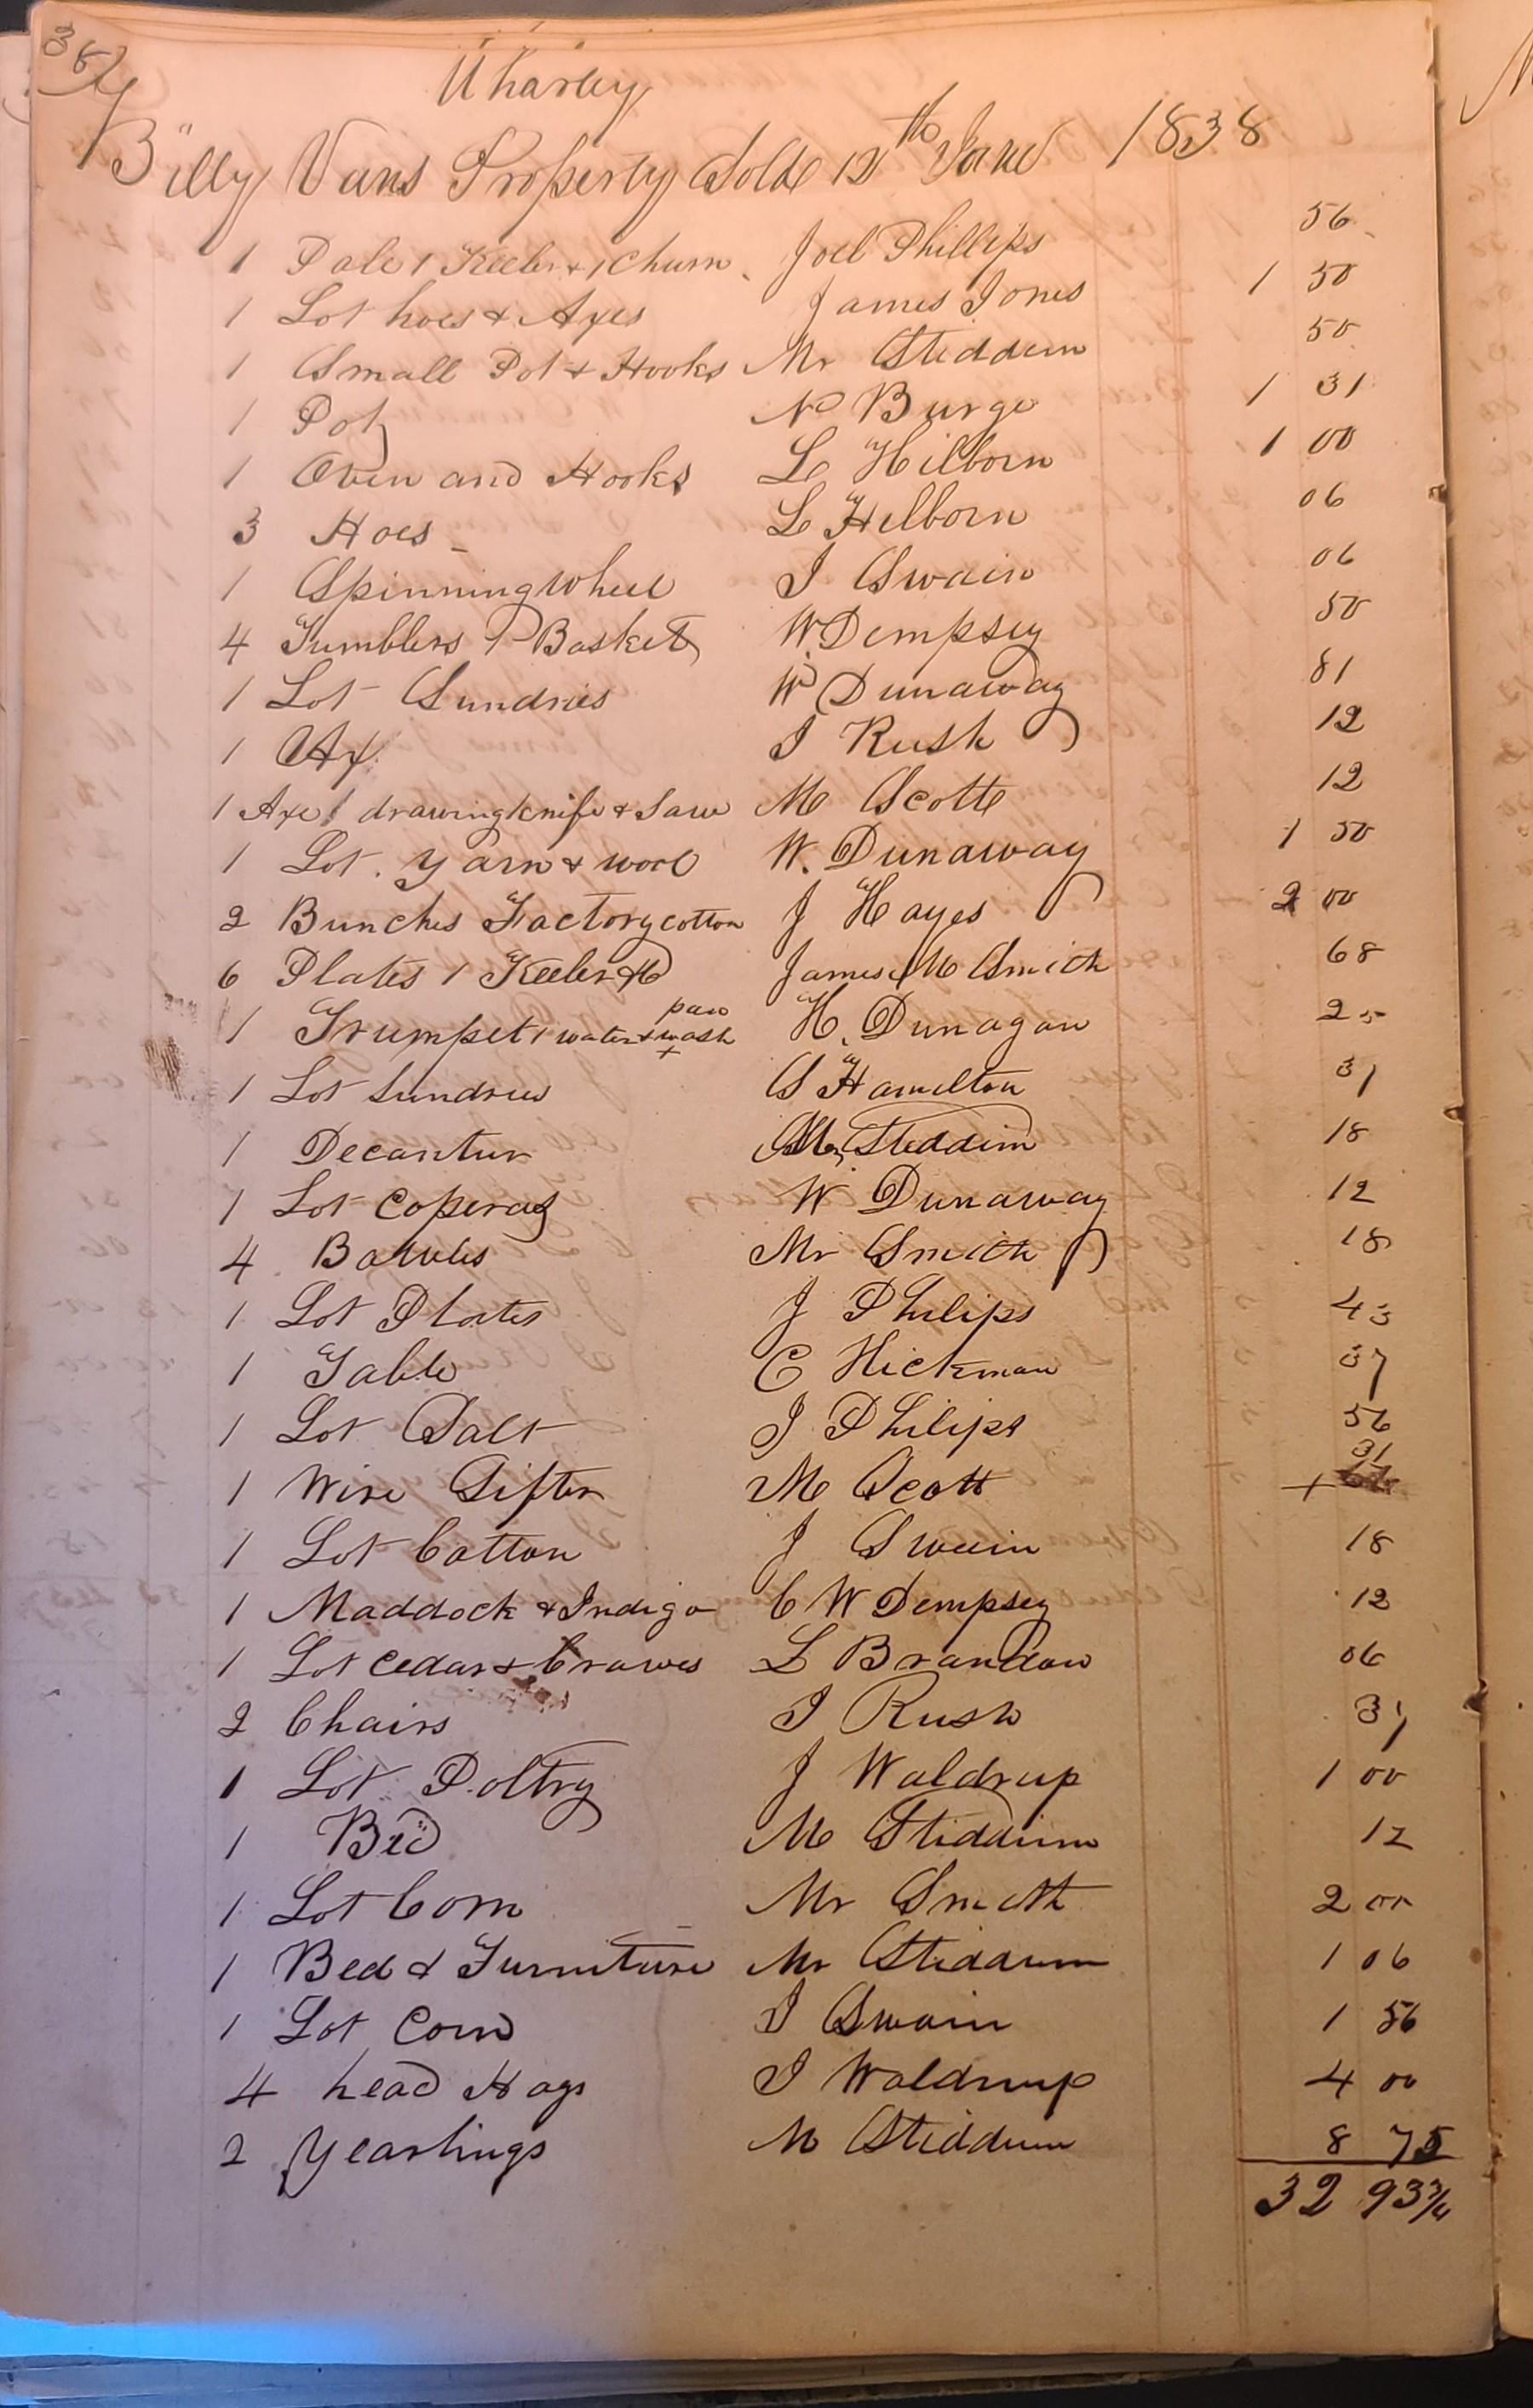 Uharley
Billy Vans Property Sold 12th June 1838
1 Pale 1 Keeler & 1 Churn Joel Phillips 56
1 Lot hoes & Axes James Jones 1 50
1 Small Pot & Hooks Mr Stiddum 50
1 Pot N Burge 1 31
1 Oven and Hooks L Hilborn 1 00
3 Hoes L Hilborn 06
1 Spinning Wheel J Swain 06
4 Tumblers 1 Basket W Dempsey 50
1 Lot Sundries W Dunaway 81
1 Ax J Rush 12
1 Axe 1 drawing knife & Saw M Scott 12
1 Lot Yarn & wool W. Dunaway 1 50
2 Bunches Factory cotton J Hayes 2 00
6 Plates 1 Keeler &c James M Smith 68
1 Trumpet 1 water & wash pan H. Dunagan 25
1 Lot Sundries S Hamilton 31
1 Decantur Mr Stiddum 18
1 Lot Coperas W Dunaway 12
4 Bottles Mr Smith 18
1 Lot Plates J Philips 43
1 Table C Hickman 37
1 Lot Salt J Philips 56
1 Wire Sifter M Scott 31
1 Lot Cotton J Swain 18
1 Maddock & Indigo C W Dempsey 12
1 Lot Cedar & L Brandon 06
2 Chairs J Rush 37
1 Lot Poltry J Waldrup 1 00
1 Bed M Stiddum 12
1 Lot Corn Mr Smith 2 00
1 Bed & Furniture Mr Stiddum 1 06
1 Lot Corn J Swain 1 56
4 head Hogs J Waldrup 4 00
2 Yearlings M Stiddum 8 75
32 93 3/4